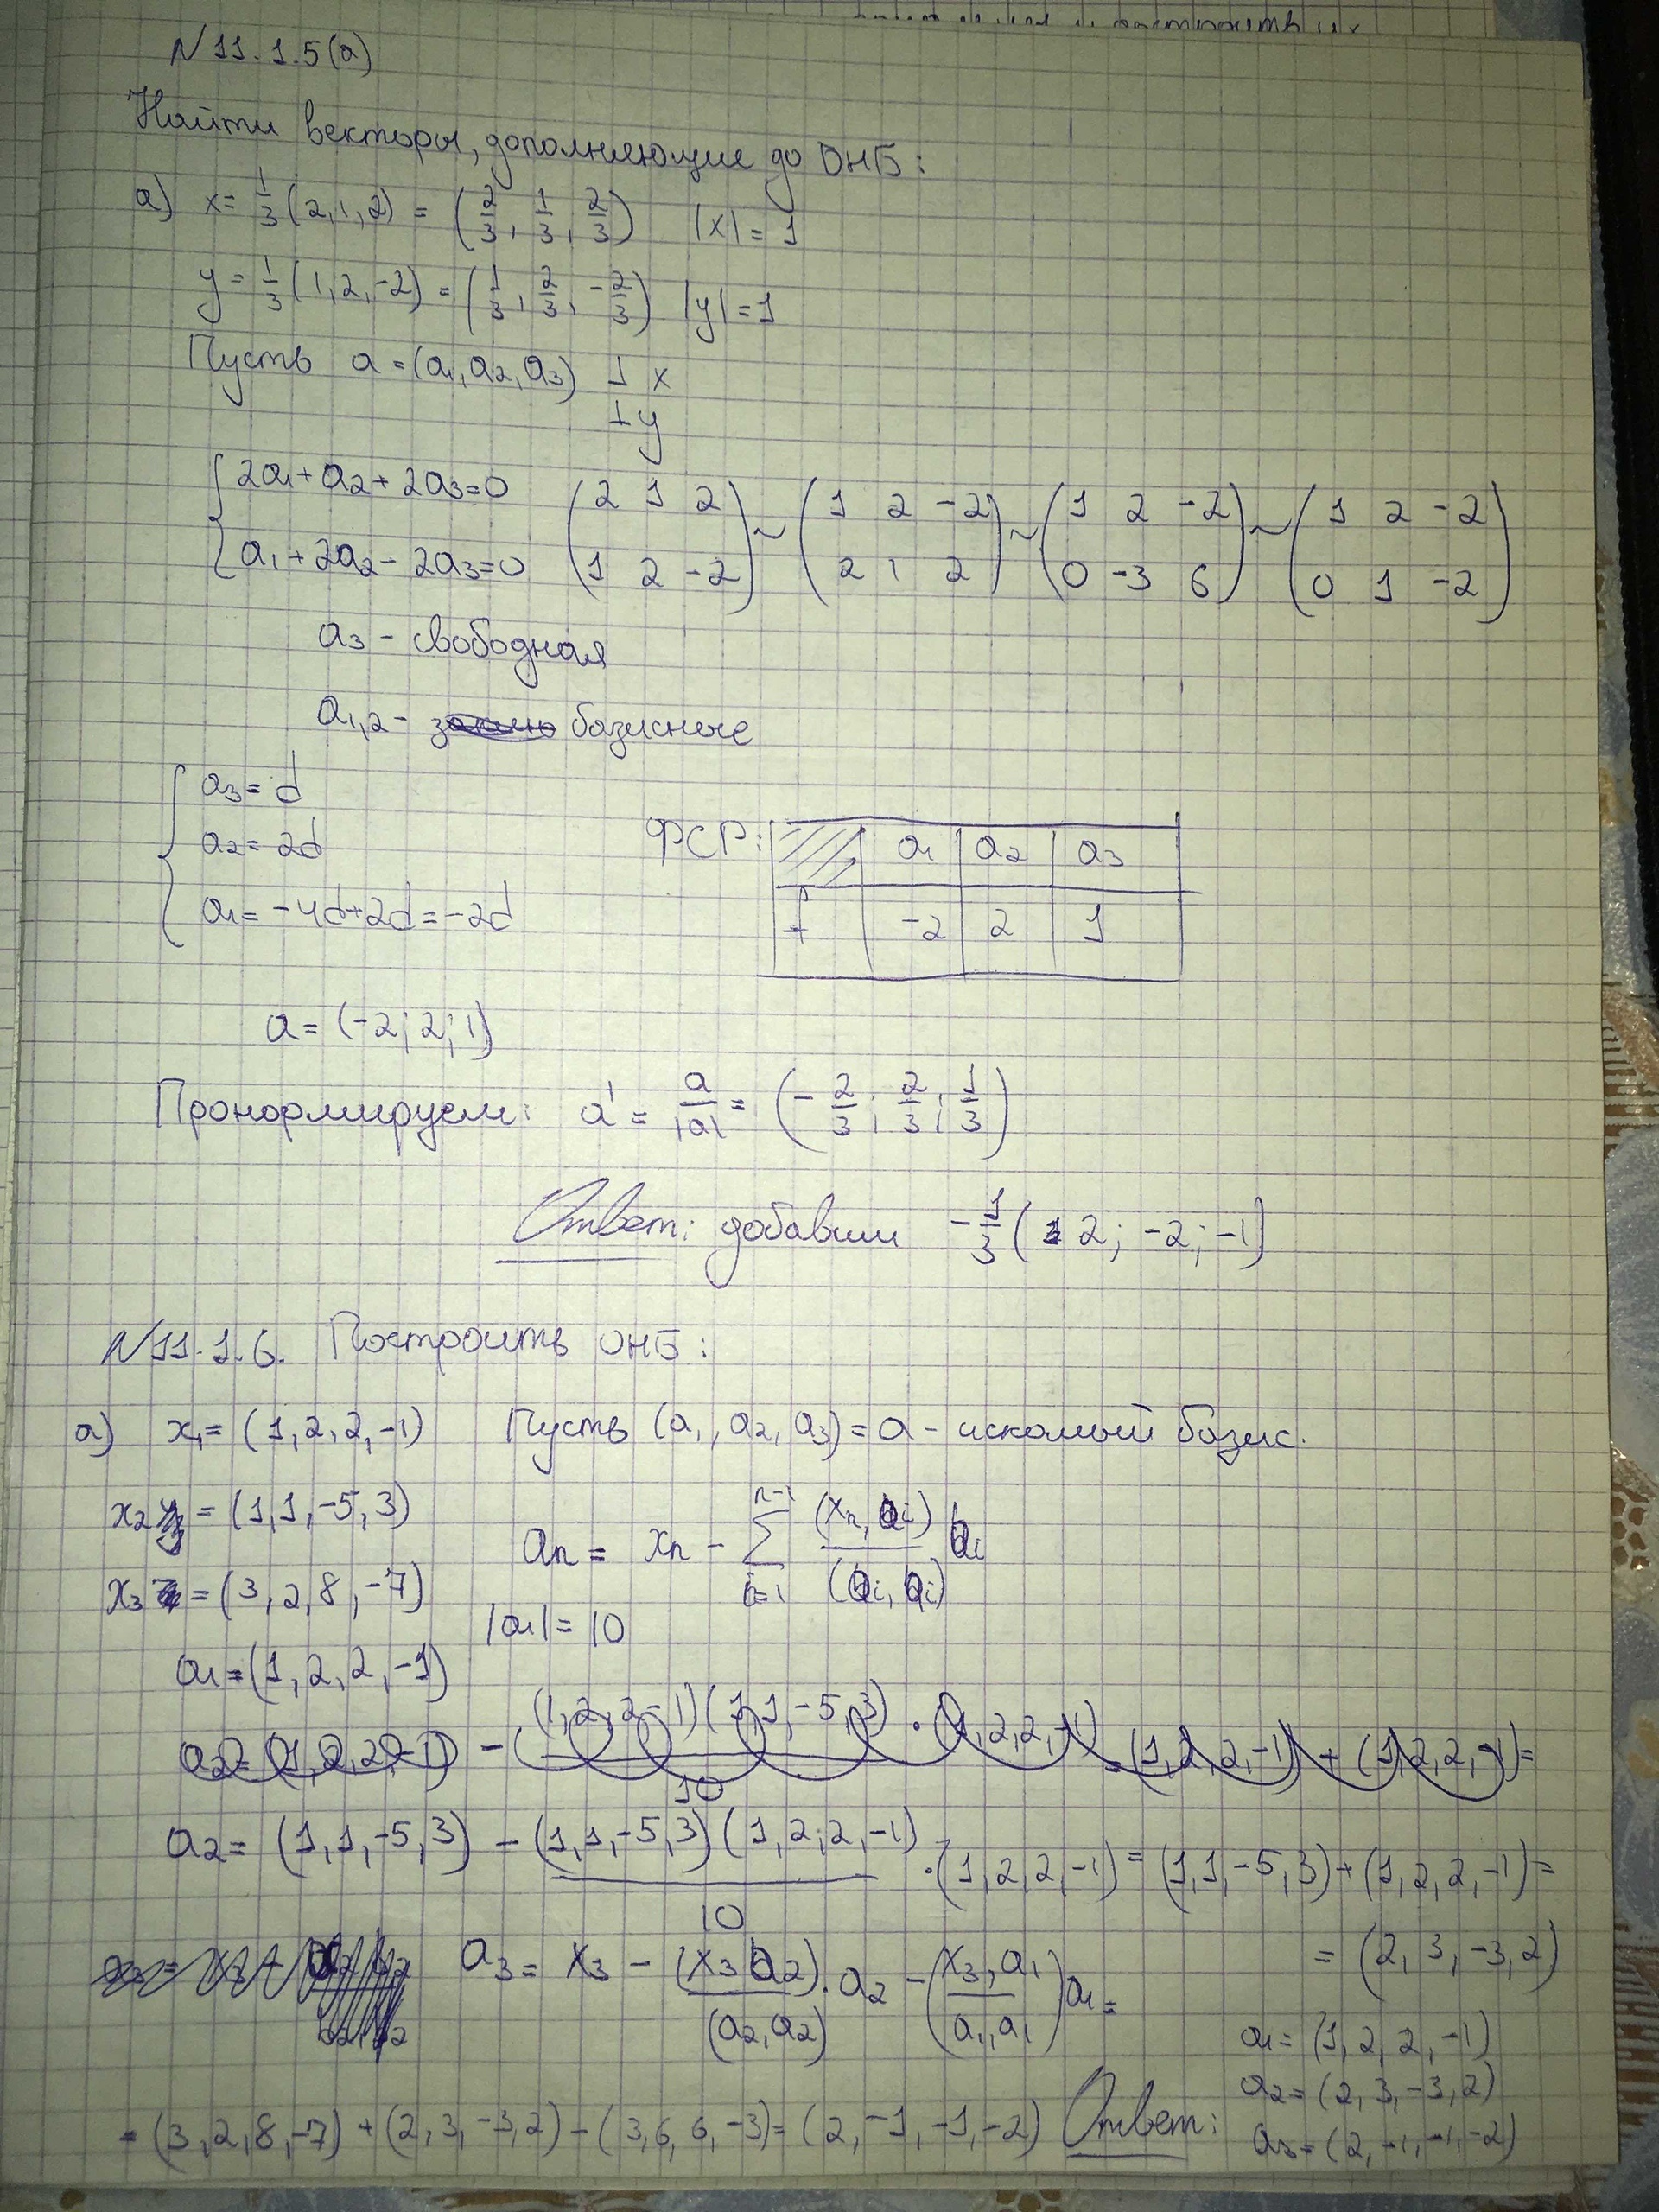 N 11.1.5(а)
Найти векторы, дополняющие до ОНБ:
а) x = 1/3 (2,1,2) = (2/3, 1/3, 2/3) |x| = 1
y = 1/3 (1,2,-2) = (1/3, 2/3, -2/3) |y| = 1
Пусть a = (a₁, a₂, a₃) ⊥ x
⊥ y
{ 2a₁ + a₂ + 2a₃ = 0
a₁ + 2a₂ - 2a₃ = 0
(2 1 2 / 1 2 -2) ~ (1 2 -2 / 2 1 2) ~ (1 2 -2 / 0 -3 6) ~ (1 2 -2 / 0 1 -2)
a₃ - свободная
a₁,₂ - базисные
{ a₃ = d
a₂ = 2d
a₁ = -4d + 2d = -2d
ФСР: a₁ | a₂ | a₃
-2 | 2 | 1
a = (-2; 2; 1)
Пронормируем: a' = a/|a| = (-2/3; 2/3; 1/3)
Ответ: добавим -1/3 (2; -2; -1)
N 11.1.6. Построить ОНБ:
а) x₁ = (1,2,2,-1) Пусть (a₁, a₂, a₃) = a - искомый базис.
x₂ = (1,1,-5,3)
aₙ = xₙ - Σ(i=1, n-1) (xₙ, aᵢ)/(aᵢ, aᵢ) aᵢ
x₃ = (3,2,8,-7)
|a₁| = 10
a₁ = (1,2,2,-1)
a₂ = (1,1,-5,3) - (1,1,-5,3)(1,2,2,-1)/10 · (1,2,2,-1) = (1,1,-5,3) + (1,2,2,-1) =
= (2,3,-3,2)
a₃ = x₃ - (x₃ a₂)/(a₂, a₂) · a₂ - (x₃, a₁ / a₁, a₁) a₁ =
= (3,2,8,-7) + (2,3,-3,2) - (3,6,6,-3) = (2,-1,-1,-2) Ответ:
a₁ = (1,2,2,-1)
a₂ = (2,3,-3,2)
a₃ = (2,-1,-1,-2)